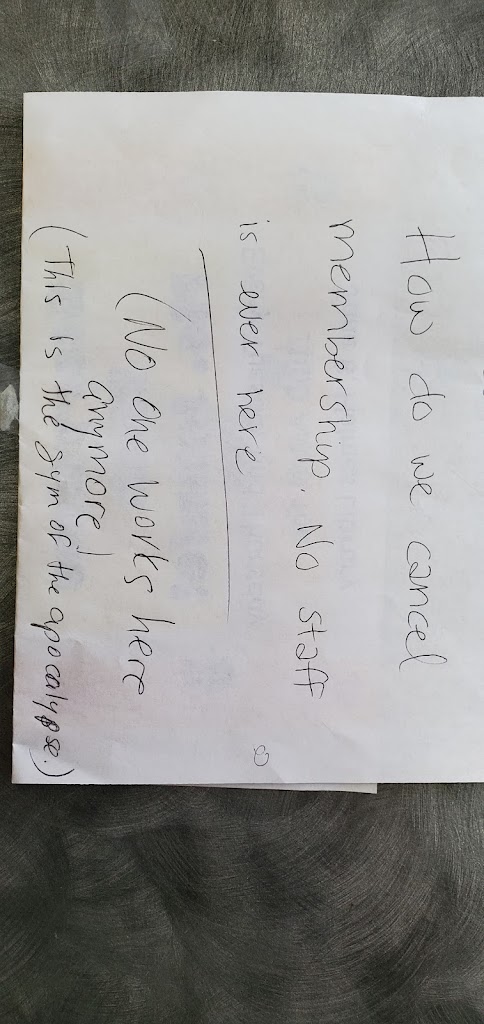 How do we cancel
membership. No staff
is ever here
(No one works here
anymore!
(This is the gym of the apocalypse.)